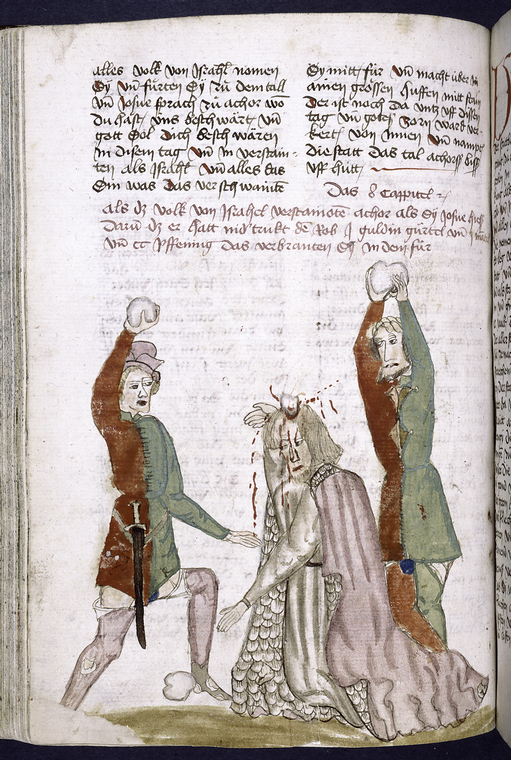 alles volk von Israhel nomen
Sy vnd fürten Sy zů dem tall
vnd Josue sprach zů achor wo
Du hast vns beschwärt vnd
gott Sol Dich beschwären
in disem tag vnd in verstain-
ten als Israhel vnd alles das
Sin was Das verschwaintt
Sy mitt für vnd macht über in
ainen grossen huffen mitt stain
Der ist noch da vntz vff dissen
tag vnd gotes zorn ward ver-
kert von Innen vnd nampt
die statt Das tal achors biss
vff hütt
Das 8 Cappittel
Als dz volk von Israhel verstainote achor als Sy Josue hiess
Darum dz er hatt vnd trukt den Rok I guldin gürttel vnd
vnd cc pfenning Das verbranten Sy in dem für